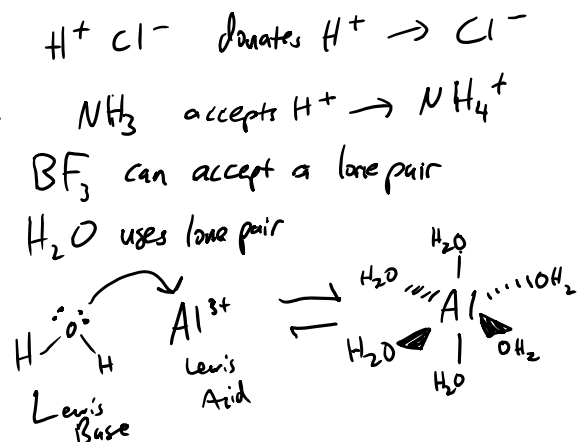 H⁺ Cl⁻ donates H⁺ → Cl⁻
NH₃ accepts H⁺ → NH₄⁺
BF₃ can accept a lone pair
H₂O uses lone pair
H O H
Al³⁺
⇌
H₂O
H₂O Al OH₂
H₂O OH₂
H₂O
Lewis
Base
Lewis
Acid